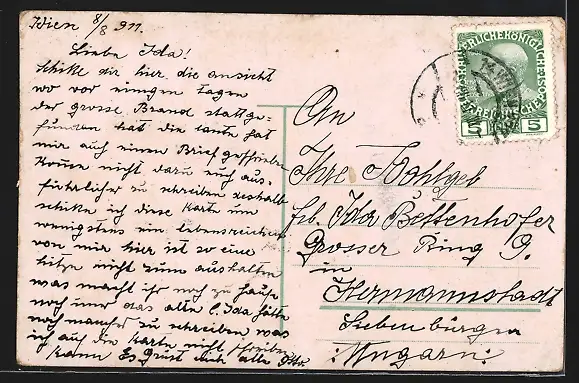 Wien 8/8 911.
Liebe Ida!
schike dir hier die ansicht
wo vor einigen tagen
der grosse Brand stattge-
funden hat die tante hat
mir auch einen Brief geschrieben
Konne nicht dazu euch aus-
führlicher zu schreiben deshalb
schike ich diese Karte um
wenigstens ein lebenszeichen
von mir hier ist so eine
hitze nicht zum aushalten
was macht ihr noch zu hause
noch imer das alte l. Ida hätte
noch mancher zu schreiben was
ich auf die Karte nicht schreiben
kann Es Grüst euch alle
An
Ihre Wohlgeb
frl. Ida Bettenhofer
Grosser Ring 9.
in
Hermannstadt
Siebenbürgen
:Ungarn:
5 5